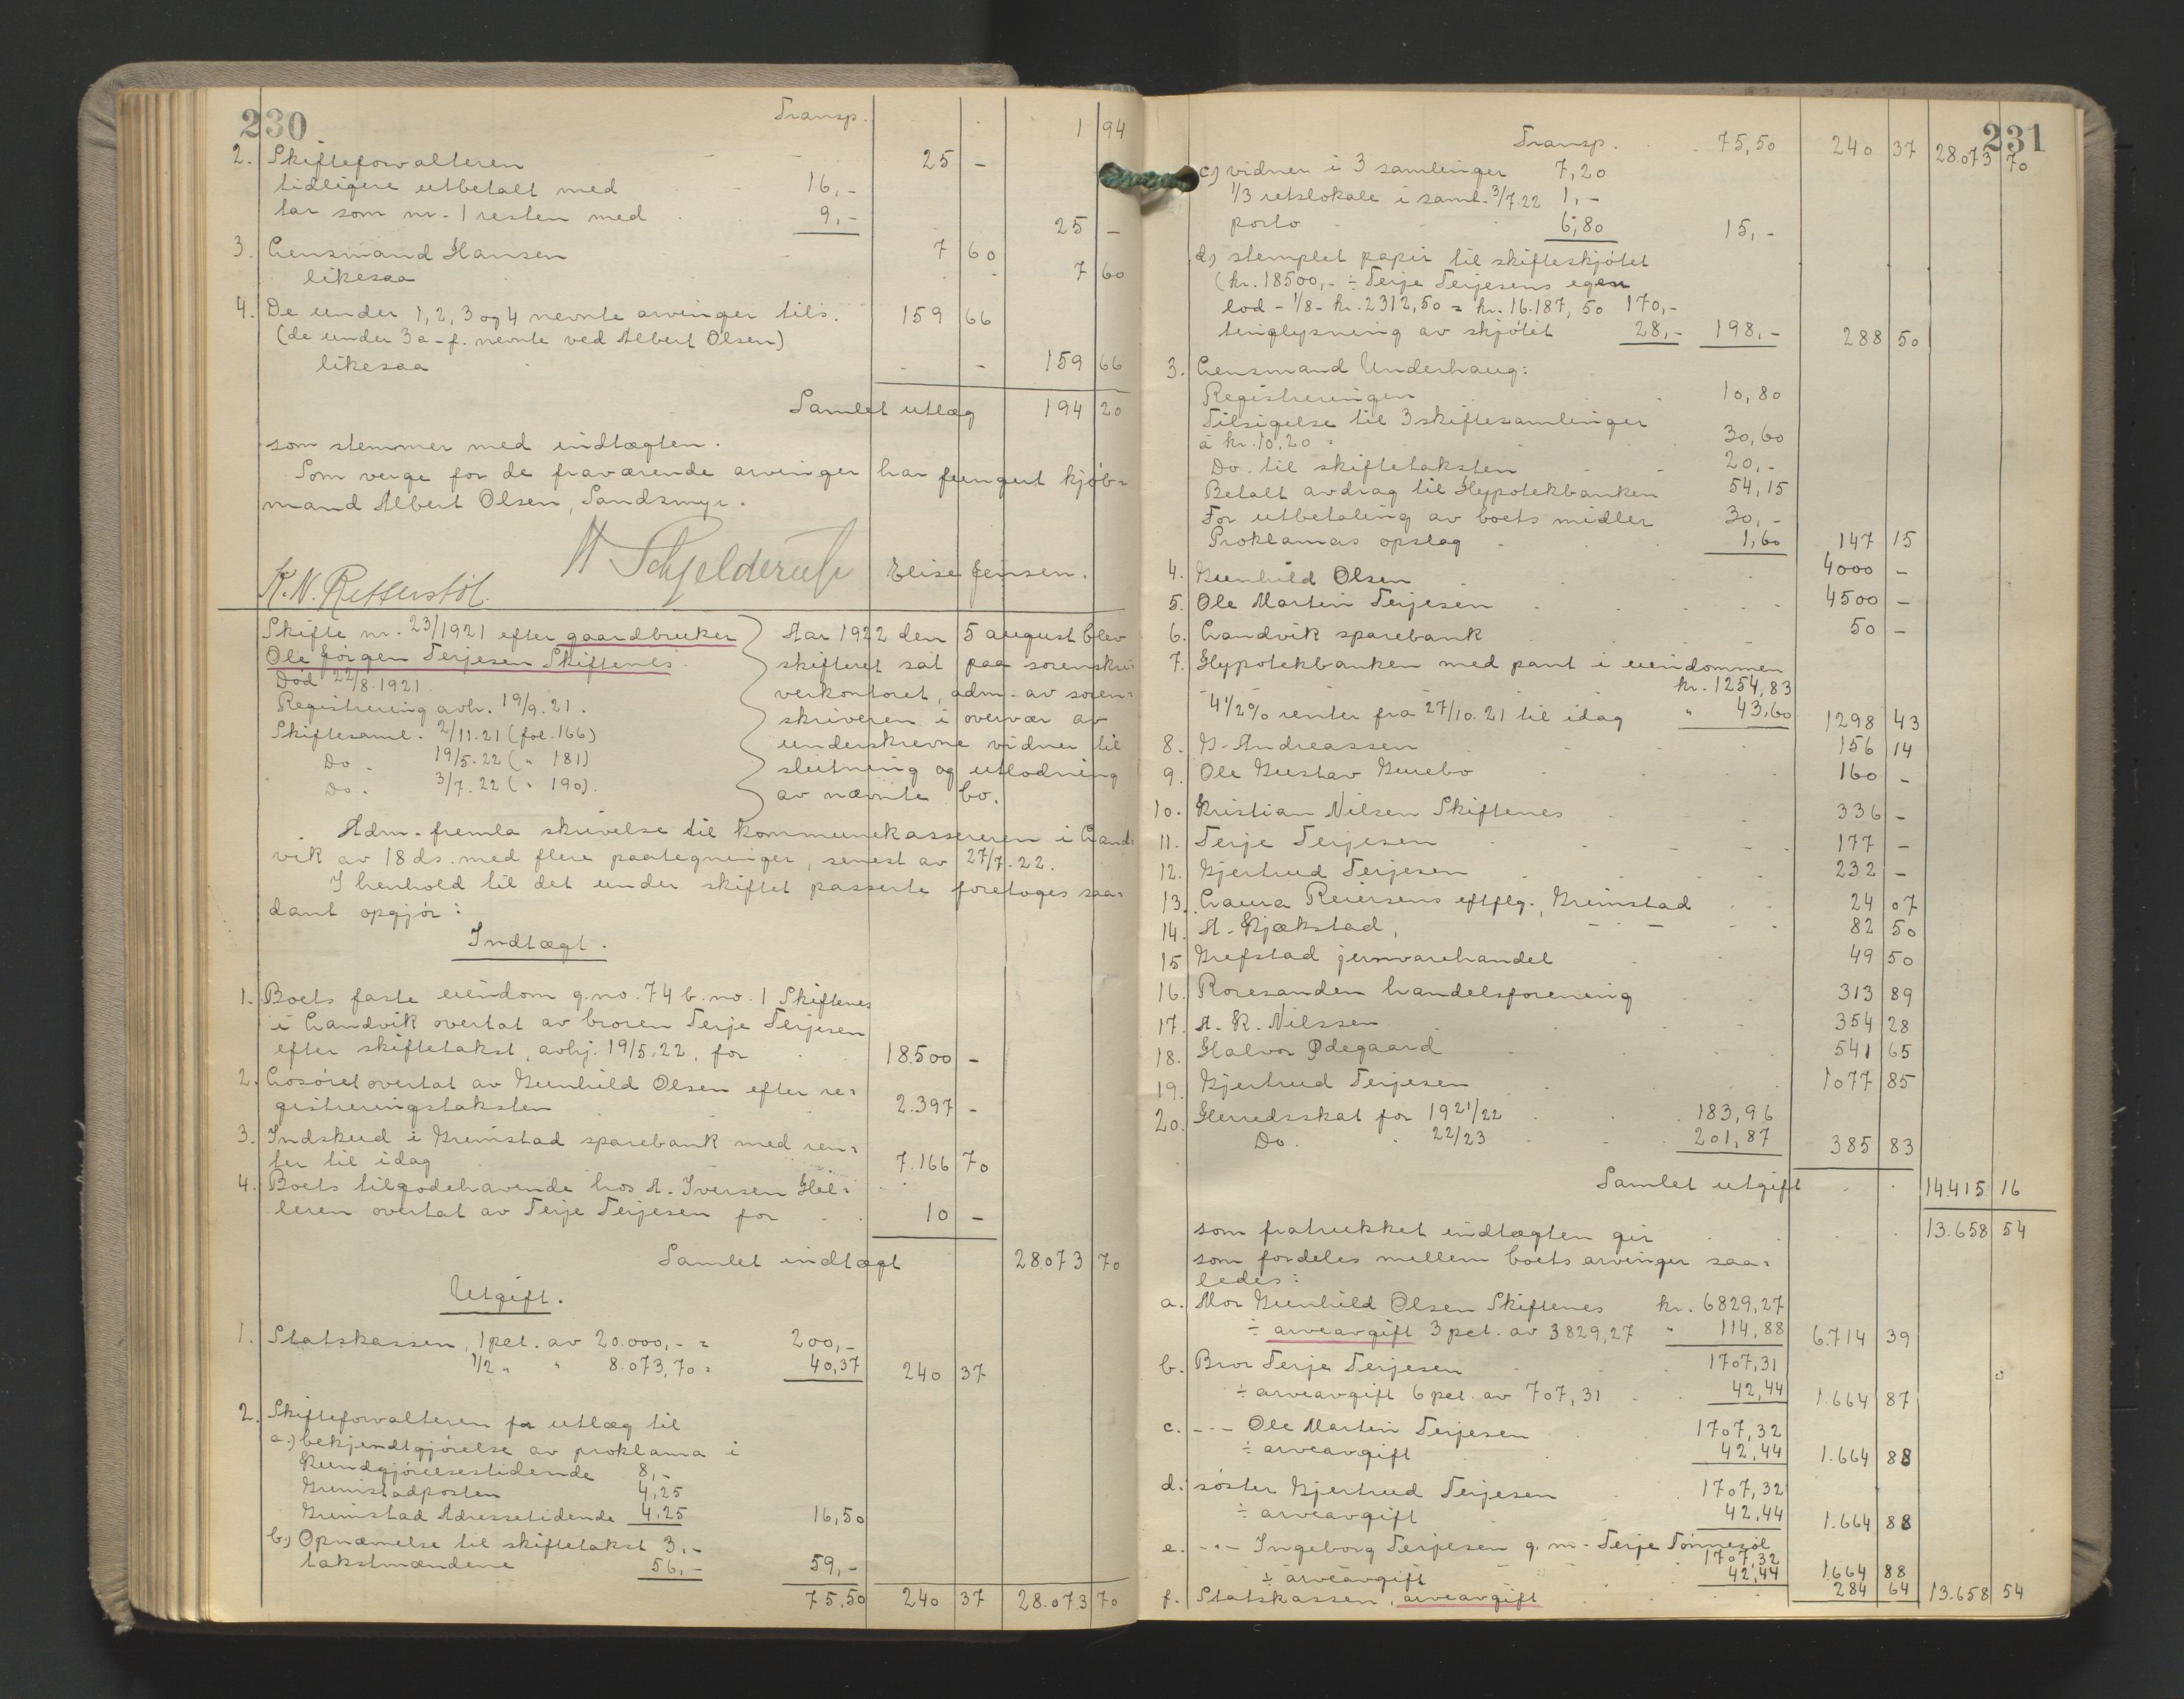 230
Transp. 1 94
2. Skifteforvalteren 25 -
tidligere utbetalt med 16,-
tar som nr. 1 resten med 9,- 25 -
3. Lensmand Hansen 7 60
likesaa 7 60
4. De under 1, 2, 3 og 4 nevnte arvinger tils. 159 66
(de under 3 a-f. nevnte ved Albert Olsen)
likesaa - 159 66
Samlet utlæg 194 20
som stemmer med indtægten.
Som verge for de fraværende arvinger har fungert kjöb=
mand Albert Olsen, Sandsmyr.
K. N. Retterstöl. Schjelderup Elise Jensen.
Skifte nr. 23/1921 efter gaardbruker
Ole Jörgen Terjesen Skiftenes.
Död 22/8.1921.
Registrering avh. 19/9.21.
Skiftesaml. 2/11.21 (fol. 166)
Do. 19/5.22 (" 181)
Do. 3/7.22 (" 190).
Aar 1922 den 5 august blev
skifteret sat paa sorenskri=
verkontoret, adm. av soren=
skriveren i overvær av
underskrevne vidner til
slutning og utlodning
av nævnte bo.
Adm. fremla skrivelse til kommunekassereren i Land=
vik av 18 ds. med flere paategninger, senest av 27/7.22.
I henhold til det under skiftet passerte foretoges saa=
dant opgjör:
Indtægt.
1. Boets faste eiendom g.no. 74 b.no. 1 Skiftenes
i Landvik overtat av broren Terje Terjesen
efter skiftetakst, avhj. 19/5.22, for 18.500 -
2. Lösöret overtat av Gunhild Olsen efter re=
gistreringstaksten 2.397 -
3. Indskud i Grimstad sparebank med ren=
ter til idag 7.166 70
4. Boets tilgodehavende hos A. Iversen Hel=
leren overtat av Terje Terjesen for 10 -
Samlet indtægt 28.073 70
Utgift.
1. Statskassen, 1 pct. av 20.000,- = 200,-
1/2 " " 8.073,70 = 40,37 240 37
2. Skifteforvalteren for utlæg til
a.) bekjendtgjörelse av proklama i
Kundgjörelsestidende 8,-
Grimstadposten 4,25
Grimstad Adressetidende 4,25 16,50
b) Opnævnelse til skiftetakst 3,-
takstmændene 56,- 59,-
75,50 240 37 28.073 70
231
Transp. 75,50 240 37 28.073 70
c) vidner i 3 samlinger 7,20
1/3 retslokale i saml. 3/7.22 1,-
porto 6,80 15,-
d) stemplet papir til skifteskjötet
(kr. 18500,- ÷ Terje Terjesens egen
lod - 1/8 - kr. 2312,50 = kr. 16.187,50 170,-
tinglysning av skjötet 28,- 198,- 288 50
3. Lensmand Underhaug:
Registreringen 10,80
Tilsigelse til 3 skiftesamlinger
á kr. 10,20 = 30,60
Do. til skiftetaksten 20,-
Betalt avdrag til Hypotekbanken 54,15
For utbetaling av boets midler 30,-
Proklamas opslag 1,60 147 15
4. Gunhild Olsen 4000 -
5. Ole Martin Terjesen 4500 -
6. Landvik sparebank 50 -
7. Hypotekbanken med pant i eiendommen
kr. 1254,83
4 1/2 % renter fra 27/10.21 til idag " 43,60 1298 43
8. G. Andreassen 156 14
9. Ole Gustav Gurebo 160 -
10. Kristian Nilsen Skiftenes 336 -
11. Terje Terjesen 177 -
12. Gjertrud Terjesen 232 -
13. Laura Reiersens eftflg., Grimstad 24 07
14. A. Kjækstad, - - - 82 50
15 Grefstad jernvarehandel 49 50
16. Roresanden handelsforening 313 89
17. A. K. Nilssen 354 28
18. Halvor Ödegaard 541 65
19. Gjertrud Terjesen 1077 85
20. Herredsskat for 1921/22 183,96
Do. " 22/23 201,87 385 83
Samlet utgift 14.415 16
som fratrukket indtægten gir 13.658 54
som fordeles mellem boets arvinger saa=
ledes:
a. Mor Gunhild Olsen Skiftenes kr. 6829,27
÷ arveavgift 3 pct. av 3829,27 " 114,88 6.714 39
b. Bror Terje Terjesen 1707,31
÷ arveavgift 6 pct. av 707,31 42,44 1.664 87
c. --- Ole Martin Terjesen 1707,32
÷ arveavgift 42,44 1.664 88
d. söster Gjertrud Terjesen 1707,32
÷ arveavgift 42,44 1.664 88
e. -"- Ingeborg Terjesen g. m. Terje Tönnesöl
1707,32
÷ arveavgift 42,44 1.664 88
f. Statskassen, arveavgift 284 64 13.658 54